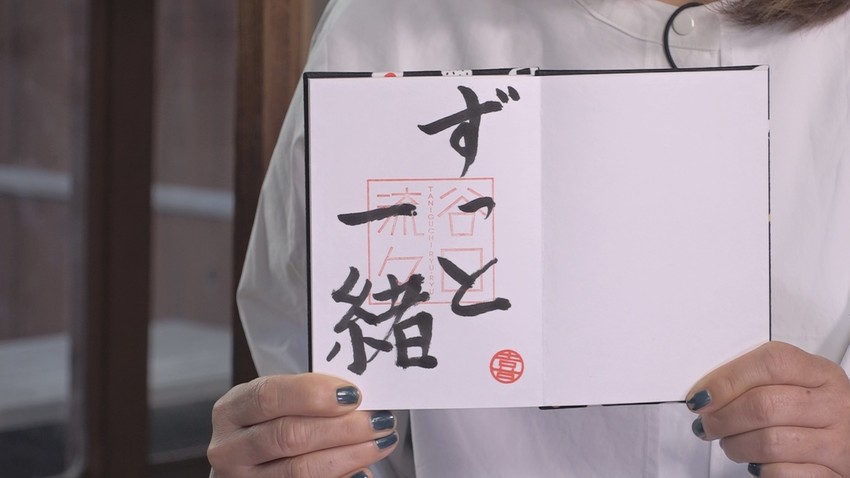 ずっと
一緒
谷口
流久
TANIGUCHI RYUKYU
喜